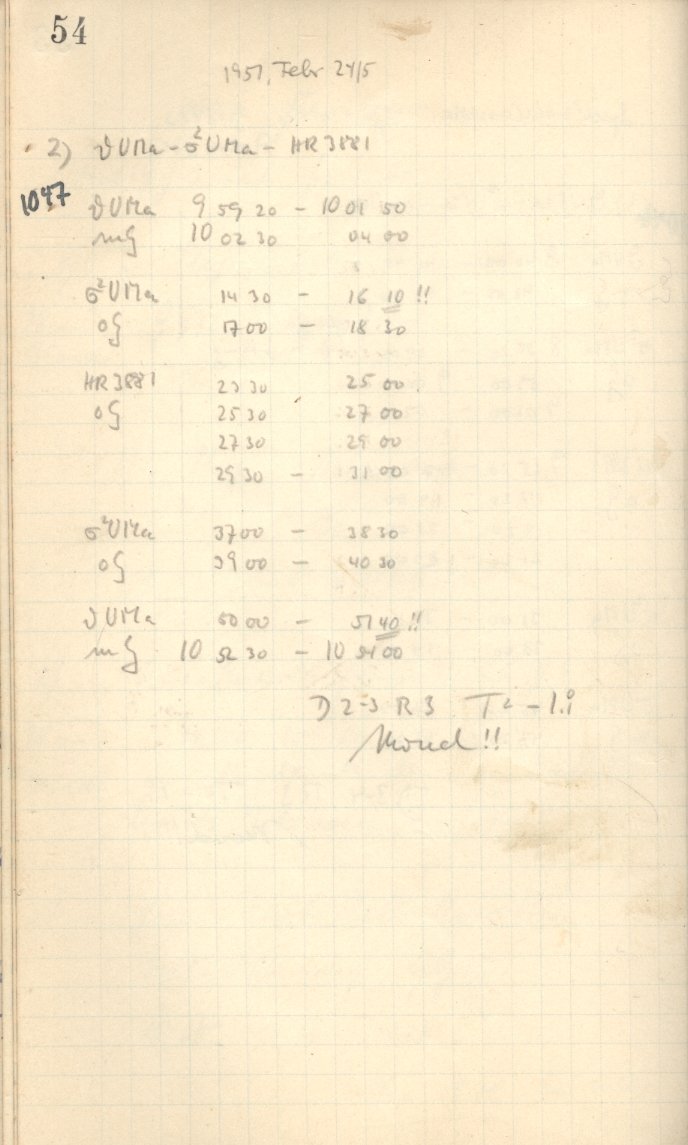 54
1951, Febr 24/5
2) ϑUMa - σ²UMa - HR 3881
1047
ϑUMa 9 59 20 - 10 01 50
mG 10 02 30 04 00
σ²UMa 14 30 - 16 10 !!
oG 17 00 - 18 30
HR 3881 23 30 25 00
oG 25 30 27 00
27 30 29 00
29 30 - 31 00
σ²UMa 37 00 - 38 30
oG 39 00 - 40 30
ϑUMa 50 00 - 51 40 !!
mG 10 52 30 - 10 54 00
D 2-3 R 3 T
Mond !!